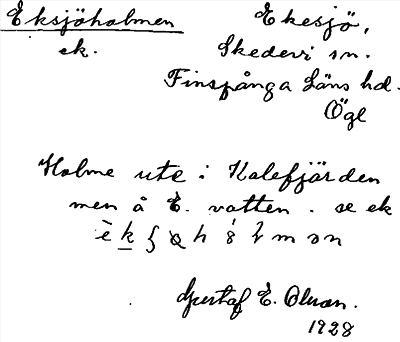 Eksjöholmen Ekesjö,
ek. Skedevi sn.
Finspånga läns hd.
Ögl
Holme ute i Kalefjärden
men å E. vatten. se ek
Gustaf E. Olsson.
1928